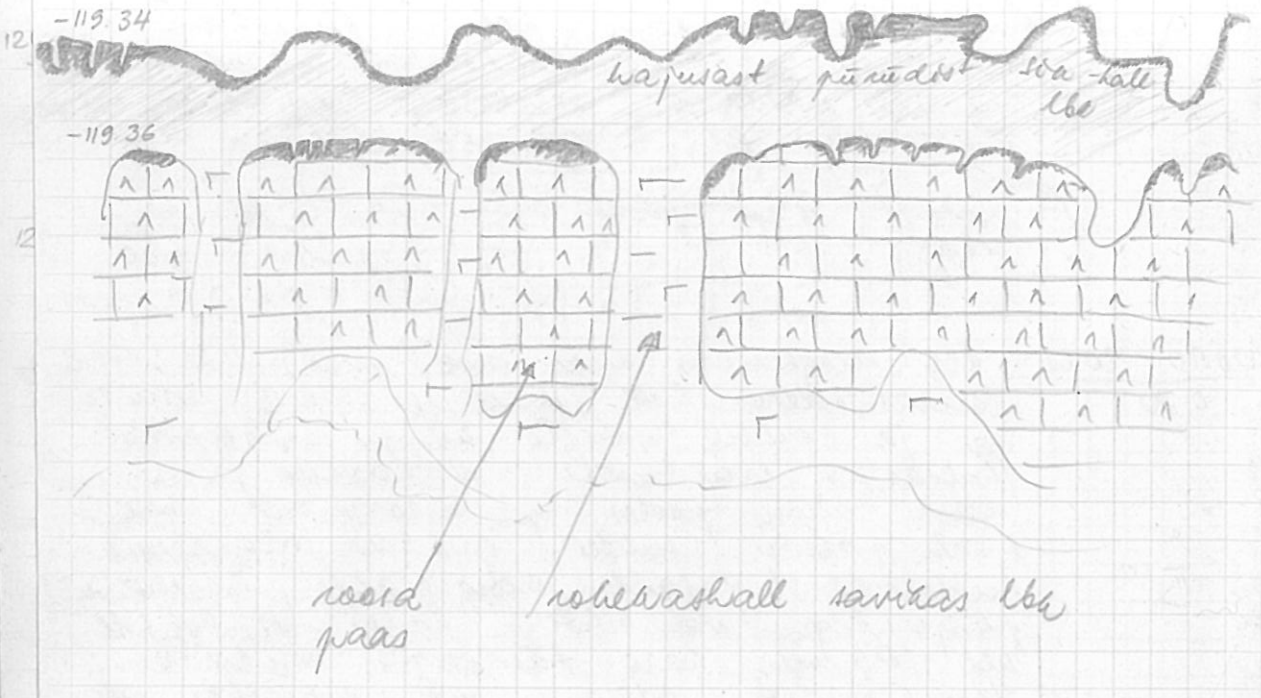 -119.34
12
hajusast püriidist sin-hall
lbk
-119.36
12
roosa
paas
rohekashall savikas lbk